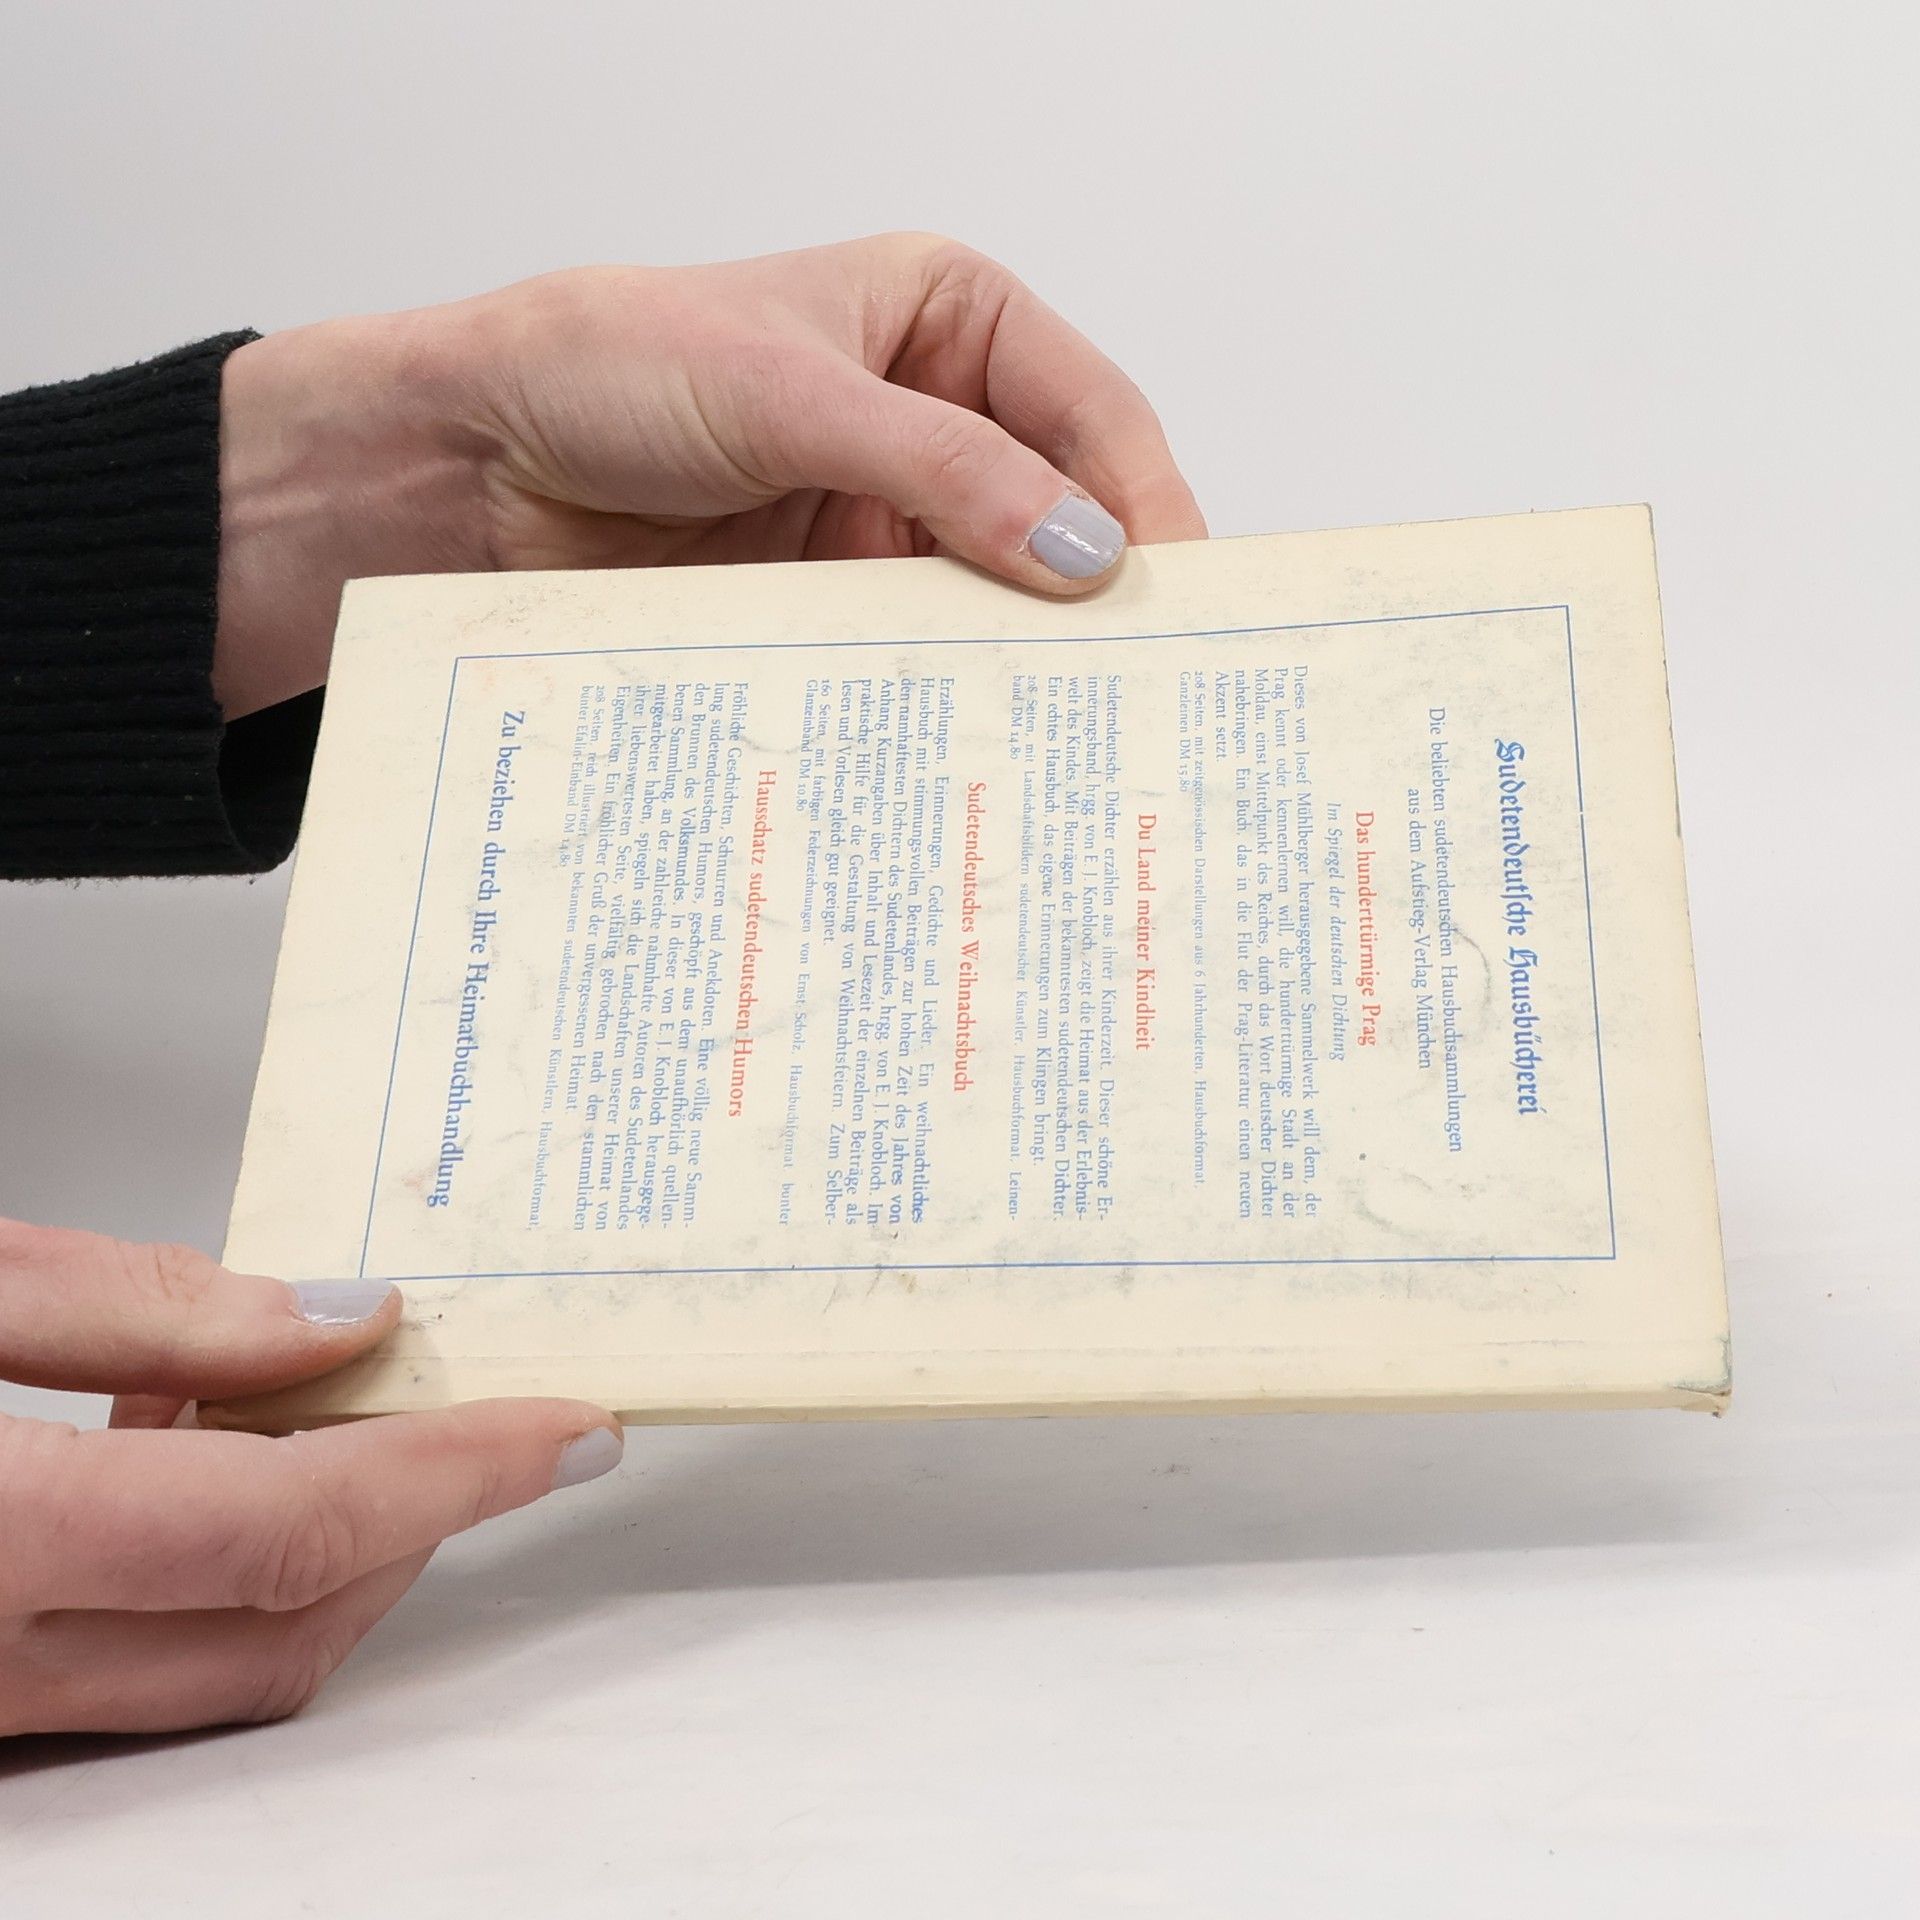 Sudetendeutsche Hausbücherei
Die beliebten sudetendeutschen Hausbuchsammlungen
aus dem Aufstieg-Verlag München
Das hunderttürmige Prag
Im Spiegel der deutschen Dichtung
Dieses von Josef Mühlberger herausgegebene Sammelwerk will dem, der
Prag kennt oder kennenlernen will, die hunderttürmige Stadt an der
Moldau, einst Mittelpunkt des Reiches, durch das Wort deutscher Dichter
nahebringen. Ein Buch, das in die Flut der Prag-Literatur einen neuen
Akzent setzt.
208 Seiten, mit zeitgenössischen Darstellungen aus 6 Jahrhunderten, Hausbuchformat,
Ganzleinen DM 15,80
Du Land meiner Kindheit
Sudetendeutsche Dichter erzählen aus ihrer Kinderzeit. Dieser schöne Er-
innerungsband, hrgg. von E. J. Knobloch, zeigt die Heimat aus der Erlebnis-
welt des Kindes. Mit Beiträgen der bekanntesten sudetendeutschen Dichter.
Ein echtes Hausbuch, das eigene Erinnerungen zum Klingen bringt.
208 Seiten, mit Landschaftsbildern sudetendeutscher Künstler, Hausbuchformat, Leinen-
band DM 14,80
Sudetendeutsches Weihnachtsbuch
Erzählungen, Erinnerungen, Gedichte und Lieder. Ein weihnachtliches
Hausbuch mit stimmungsvollen Beiträgen zur hohen Zeit des Jahres von
den namhaftesten Dichtern des Sudetenlandes, hrgg. von E. J. Knobloch. Im
Anhang Kurzangaben über Inhalt und Lesezeit der einzelnen Beiträge als
praktische Hilfe für die Gestaltung von Weihnachtsfeiern. Zum Selber-
lesen und Vorlesen gleich gut geeignet.
160 Seiten, mit farbigen Federzeichnungen von Ernst Scholz, Hausbuchformat, bunter
Glanzeinband DM 10,80
Hausschatz sudetendeutschen Humors
Fröhliche Geschichten, Schnurren und Anekdoten. Eine völlig neue Samm-
lung sudetendeutschen Humors, geschöpft aus dem unaufhörlich quellen-
den Brunnen des Volksmundes. In dieser von E. J. Knobloch herausgege-
benen Sammlung, an der zahlreiche namhafte Autoren des Sudetenlandes
mitgearbeitet haben, spiegeln sich die Landschaften unserer Heimat von
ihrer liebenswertesten Seite, vielfältig gebrochen nach den stammlichen
Eigenheiten. Ein fröhlicher Gruß der unvergessenen Heimat.
208 Seiten, reich illustriert von bekannten sudetendeutschen Künstlern, Hausbuchformat,
bunter Efalin-Einband DM 14,80
Zu beziehen durch Ihre Heimatbuchhandlung